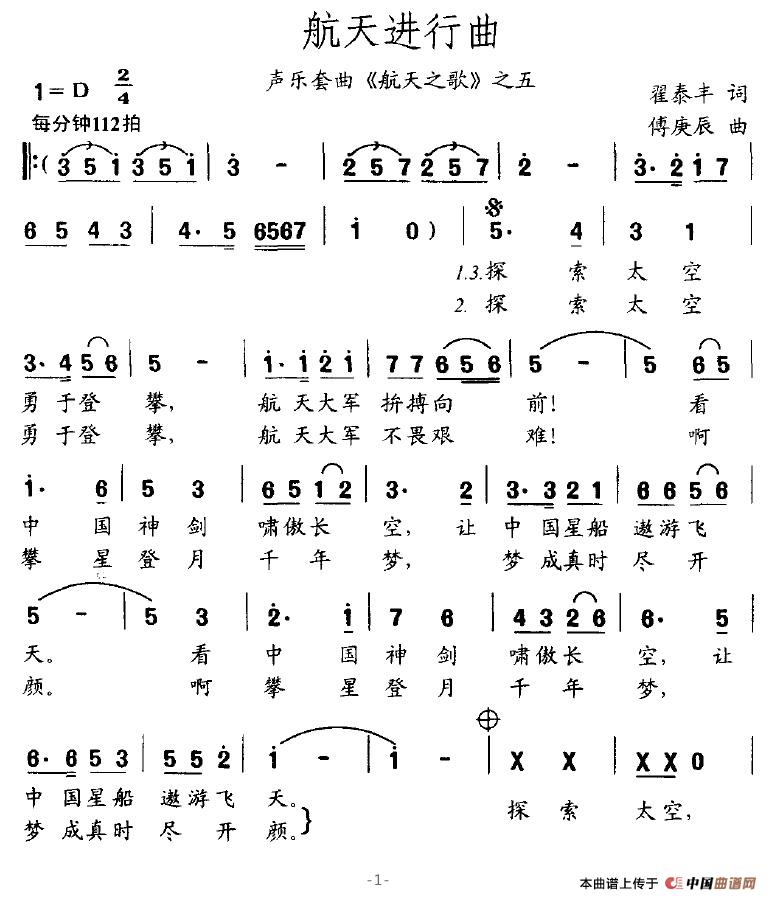 航天进行曲
声乐套曲《航天之歌》之五
1=D 2/4
翟泰丰 词
每分钟112拍
傅庚辰 曲
‖:( 3 5 i 3 5 i | 3 - | 2 5 7 2 5 7 | 2 - | 3· 2 1 7 |
6 5 4 3 | 4· 5 6567 | i 0 ) | 5· 4 | 3 1 |
1.3.探 索 太 空
2. 探 索 太 空
3· 4 5 6 | 5 - | i· i 2 i | 7 7 6 5 6 | 5 - | 5 6 5 |
勇 于 登 攀, 航 天 大 军 拚 搏 向 前! 看
勇 于 登 攀, 航 天 大 军 不 畏 艰 难! 啊
i· 6 | 5 3 | 6 5 1 2 | 3· 2 | 3· 3 2 1 | 6 6 5 6 |
中 国 神 剑 啸 傲 长 空, 让 中 国 星 船 遨 游 飞
攀 星 登 月 千 年 梦, 梦 成 真 时 尽 开
5 - | 5 3 | 2· i | 7 6 | 4 3 2 6 | 6· 5 |
天。 看 中 国 神 剑 啸 傲 长 空, 让
颜。 啊 攀 星 登 月 千 年 梦,
6· 6 5 3 | 5 5 2 | i - | i - | X X | X X 0 |
中 国 星 船 遨 游 飞 天。 探 索 太 空,
梦 成 真 时 尽 开 颜。}
-1-
本曲谱上传于 中国曲谱网